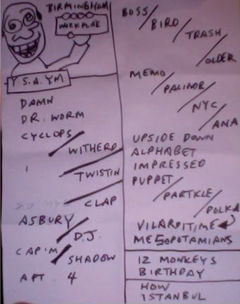 BIRMINGHAM
WORKPLACE
Y S.A.YM
DAMN
DR. WORM
CYCLOPS
WITHERD
TWISTIN
CLAP
ASBURY
D.J.
CAP'M
SHADOW
APT. 4
BOSS/
BIRD/
TRASH/
OLDER
MEMO/
PALINDR/
NYC/
ANA
UPSIDE DOWN
ALPHABET
IMPRESSED
PUPPET/
PARTICLE/
POLKA
VILAPITIME
MESOPOTAMIANS
12 MONKEYS
BIRTHDAY
HOW
ISTANBUL